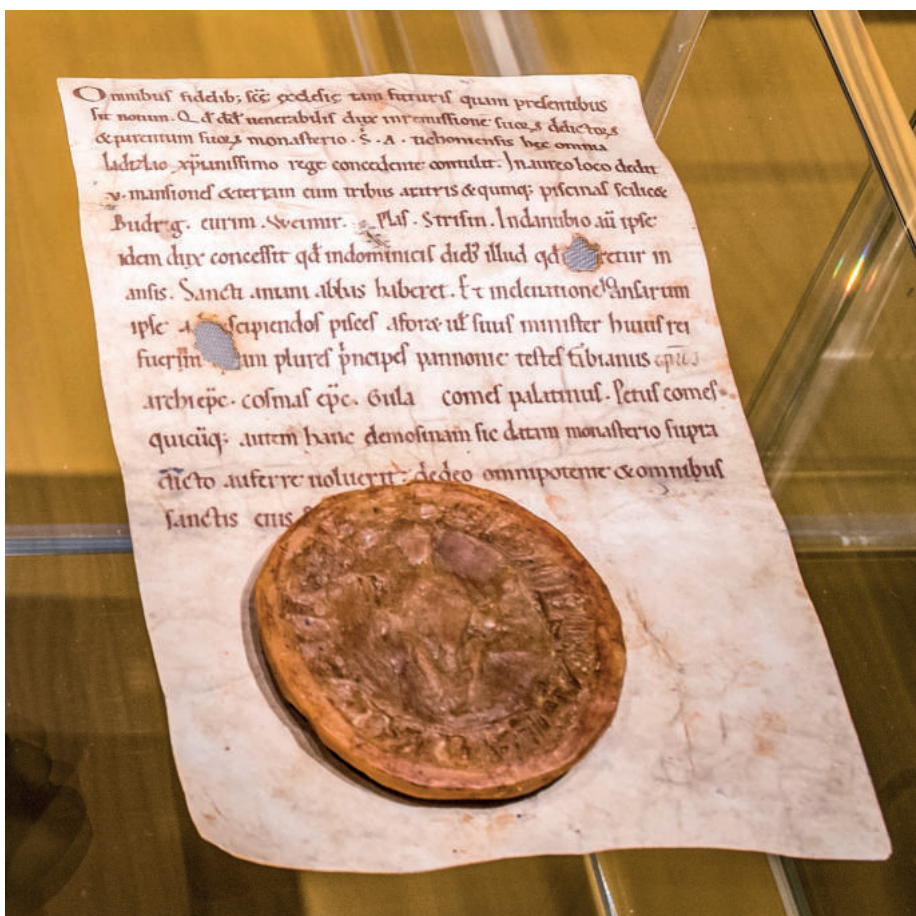 Omnibus fidelib; sc̄ę ęcclesię tam futuris quam presentibus
sit notum. Q d d̄d̄ uenerabilis dux in remissione suoꝝ delictoꝝ
& parentum suoꝝ monasterio . S̄ . A . tichoniensis hęc omnia
ladizlao xp̄ianissimo rege concedente contulit . In aureo loco dedit
.v. mansiones & terram cum tribus aratris & quinq; piscinas scilic&
Budrig . eurim . Weimir . Plas . Strisin . In danubio aū ipse
idem dux concessit qd̄ in dominicis dieb; illud qd̄ retur in
ansis . Sancti aniani abbas haberet . Et in eleuatione ansarum
ipse scipiendos pisces afora ut̄ suus minister huius rei
fuer plures p̄ncipes pannonie testes
archiep̄c . cosmas ep̄c . Gula comes palatinus . Petus comes .
quicūq; autem hanc elemosinam sic datam monasterio supra
dicto auferre uoluerit : de deo omnipotente & omnibus
sanctis eius